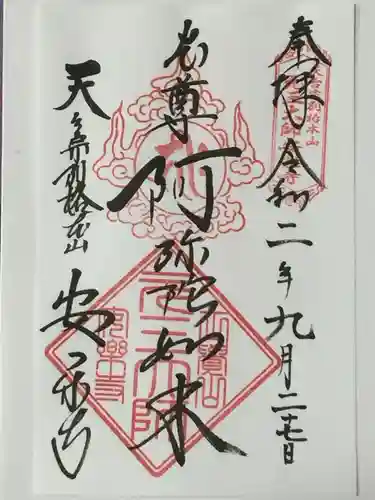 奉拝 令和二年九月二十七日
本尊 阿弥陀如来
天台宗別格本山
安楽寺
元三大師